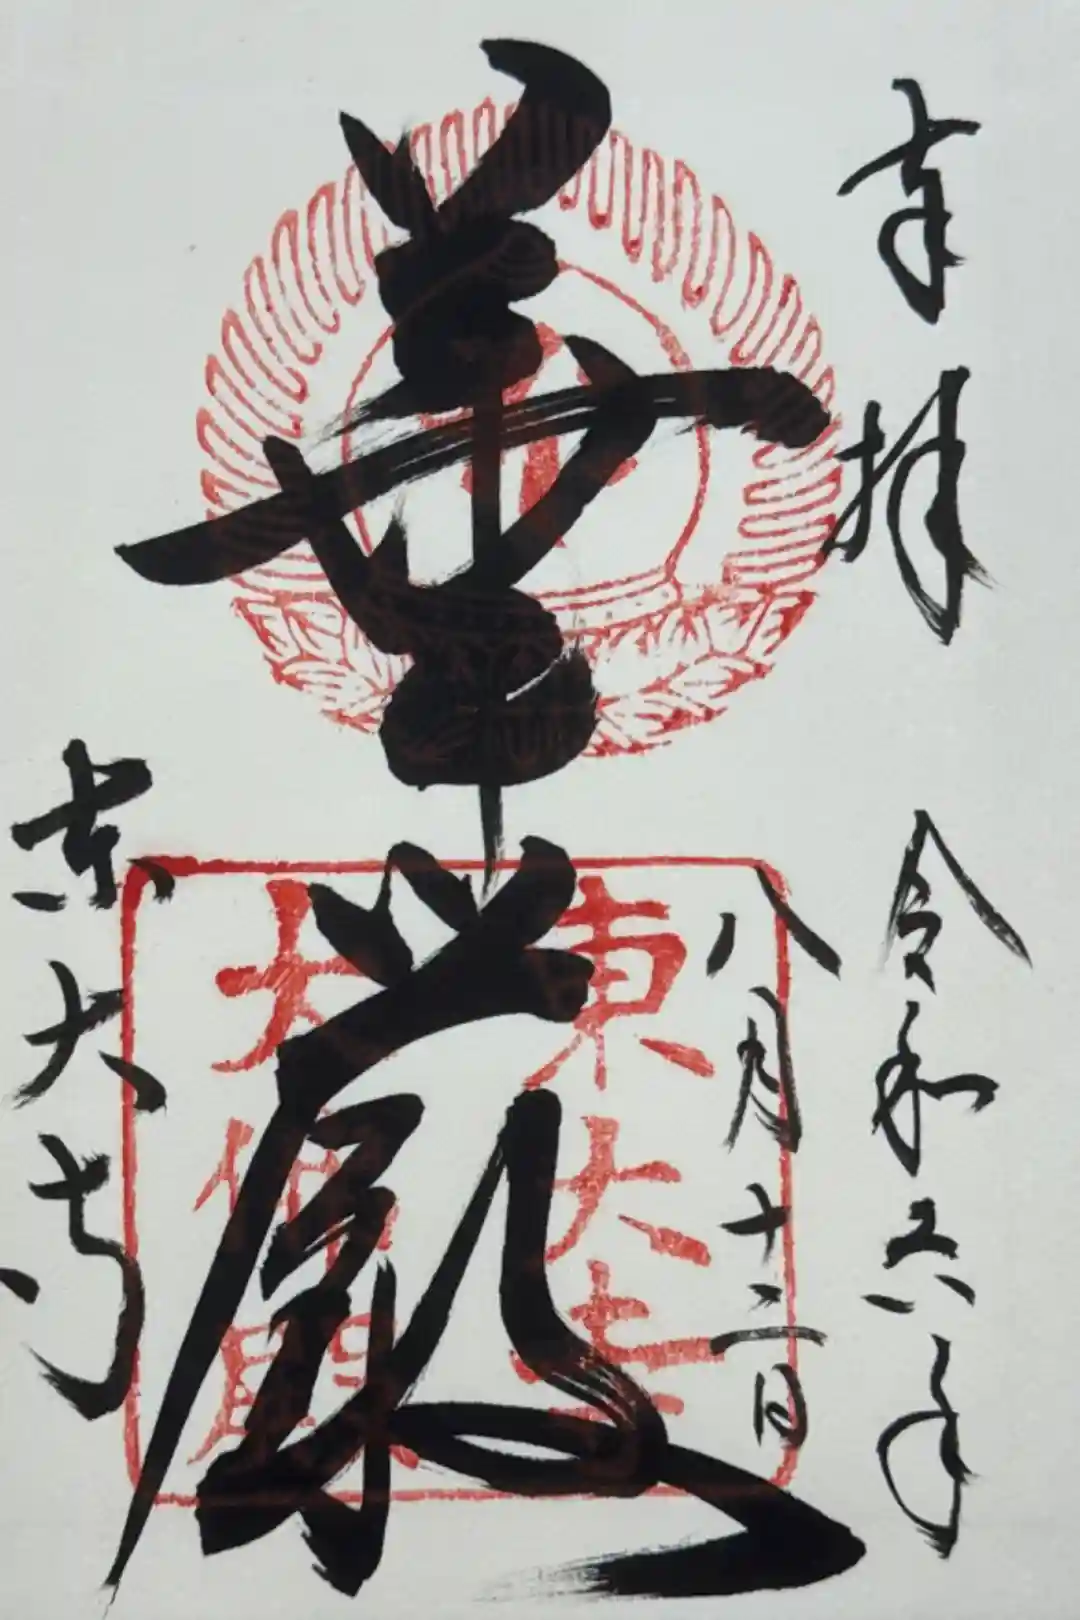 奉拝
令和六年
八月十二日
華厳
東大寺
大仏殿
東大寺